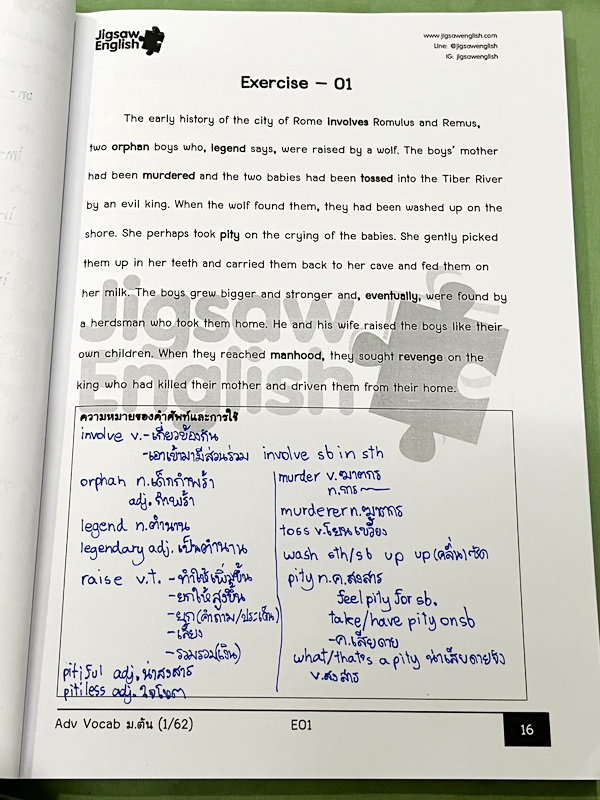 Jigsaw
English
www.jigsawenglish.com
Line: @jigsawenglish
IG: jigsawenglish
Exercise – 01
The early history of the city of Rome involves Romulus and Remus,
two orphan boys who, legend says, were raised by a wolf. The boys' mother
had been murdered and the two babies had been tossed into the Tiber River
by an evil king. When the wolf found them, they had been washed up on the
shore. She perhaps took pity on the crying of the babies. She gently picked
them up in her teeth and carried them back to her cave and fed them on
her milk. The boys grew bigger and stronger and, eventually, were found by
a herdsman who took them home. He and his wife raised the boys like their
own children. When they reached manhood, they sought revenge on the
king who had killed their mother and driven them from their home.
Jigsaw
English
ความหมายของคำศัพท์และการใช้
involve v.-เกี่ยวข้องกับ
-เอาเข้ามามีส่วนร่วม involve sb in sth
orphan n.เด็กกำพร้า
adj. กำพร้า
legend n.ตำนาน
legendary adj. เป็นตำนาน
raise v.t. -ทำให้เพิ่มขึ้น
-ยกให้สูงขึ้น
-ยก(คำถาม/ประเด็น)
-เลี้ยง
-รวบรวม(เงิน)
pitiful adj. น่าสงสาร
pitiless adj. ใจโหด
murder v.ฆาตกร
n.การ
murderer n.ฆาตกร
toss v.โยน เขวี้ยง
wash sth/sb up up (คลื่น)ซัด
pity n.ค.สงสาร
feel pity for sb.
take/have pity on sb
-ค.เสียดาย
what/that's a pity น่าเสียดายจัง
v.สงสาร
Adv Vocab ม.ต้น (1/62)
E01
16